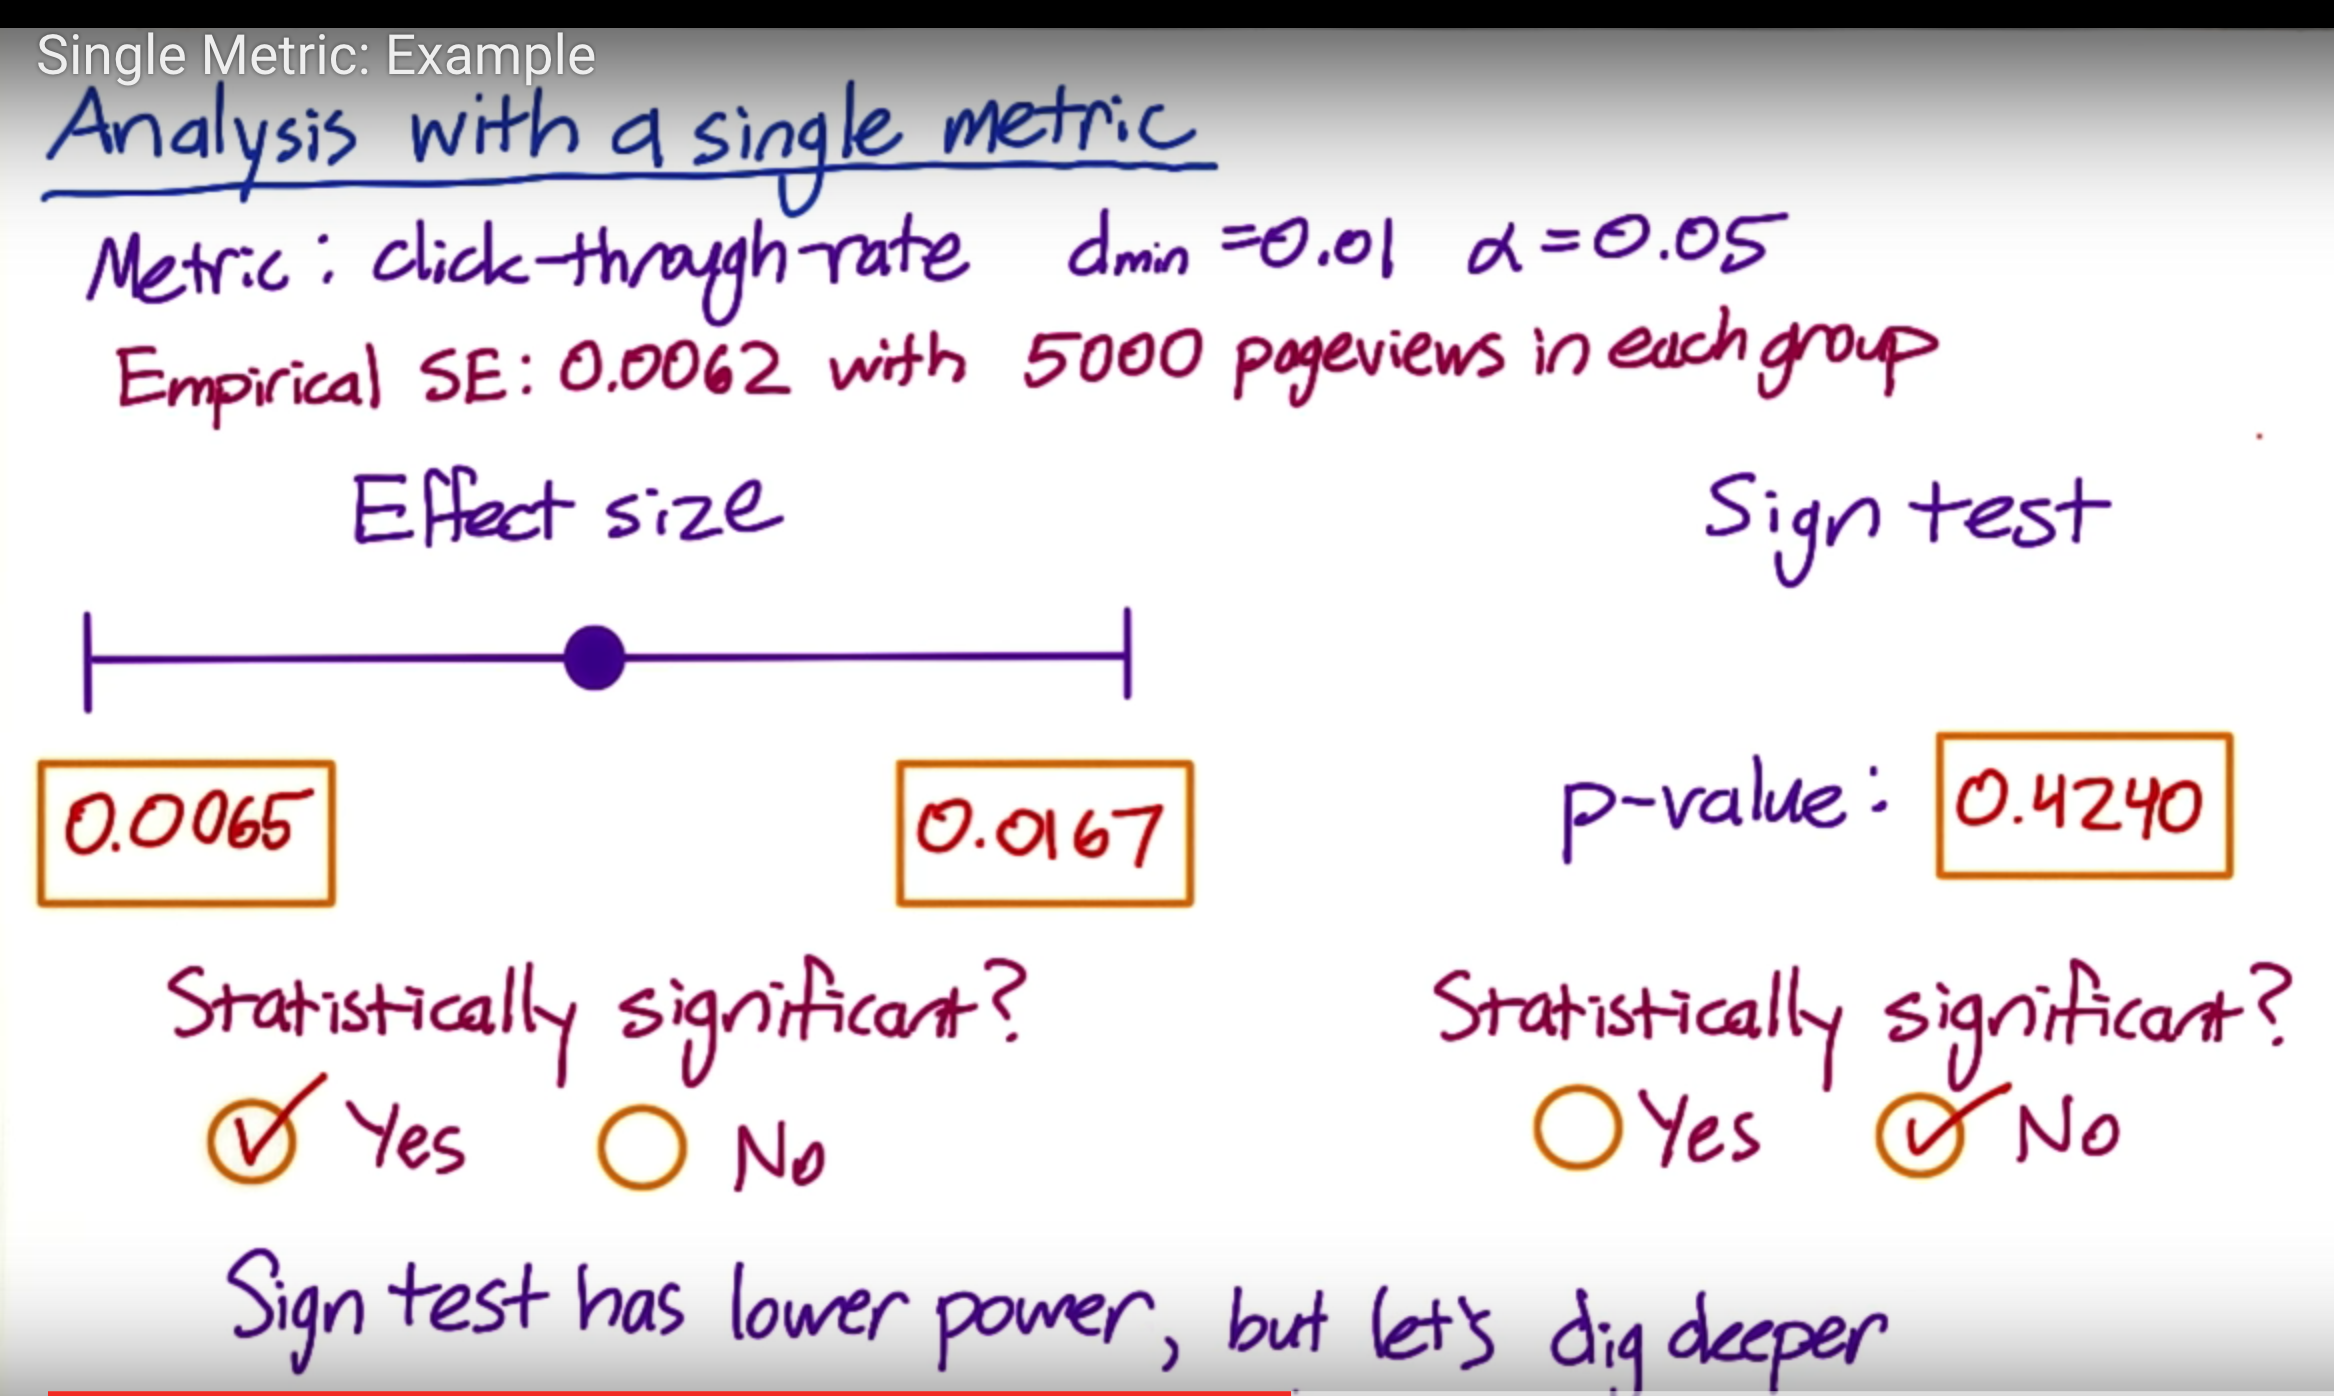 Single Metric: Example
Analysis with a single metric
Metric: click-through-rate dmin = 0.01 α = 0.05
Empirical SE: 0.0062 with 5000 pageviews in each group
Effect size
Sign test
0.0065
0.0167
p-value: 0.4240
Statistically significant?
Yes No
Statistically significant?
Yes No
Sign test has lower power, but let's dig deeper